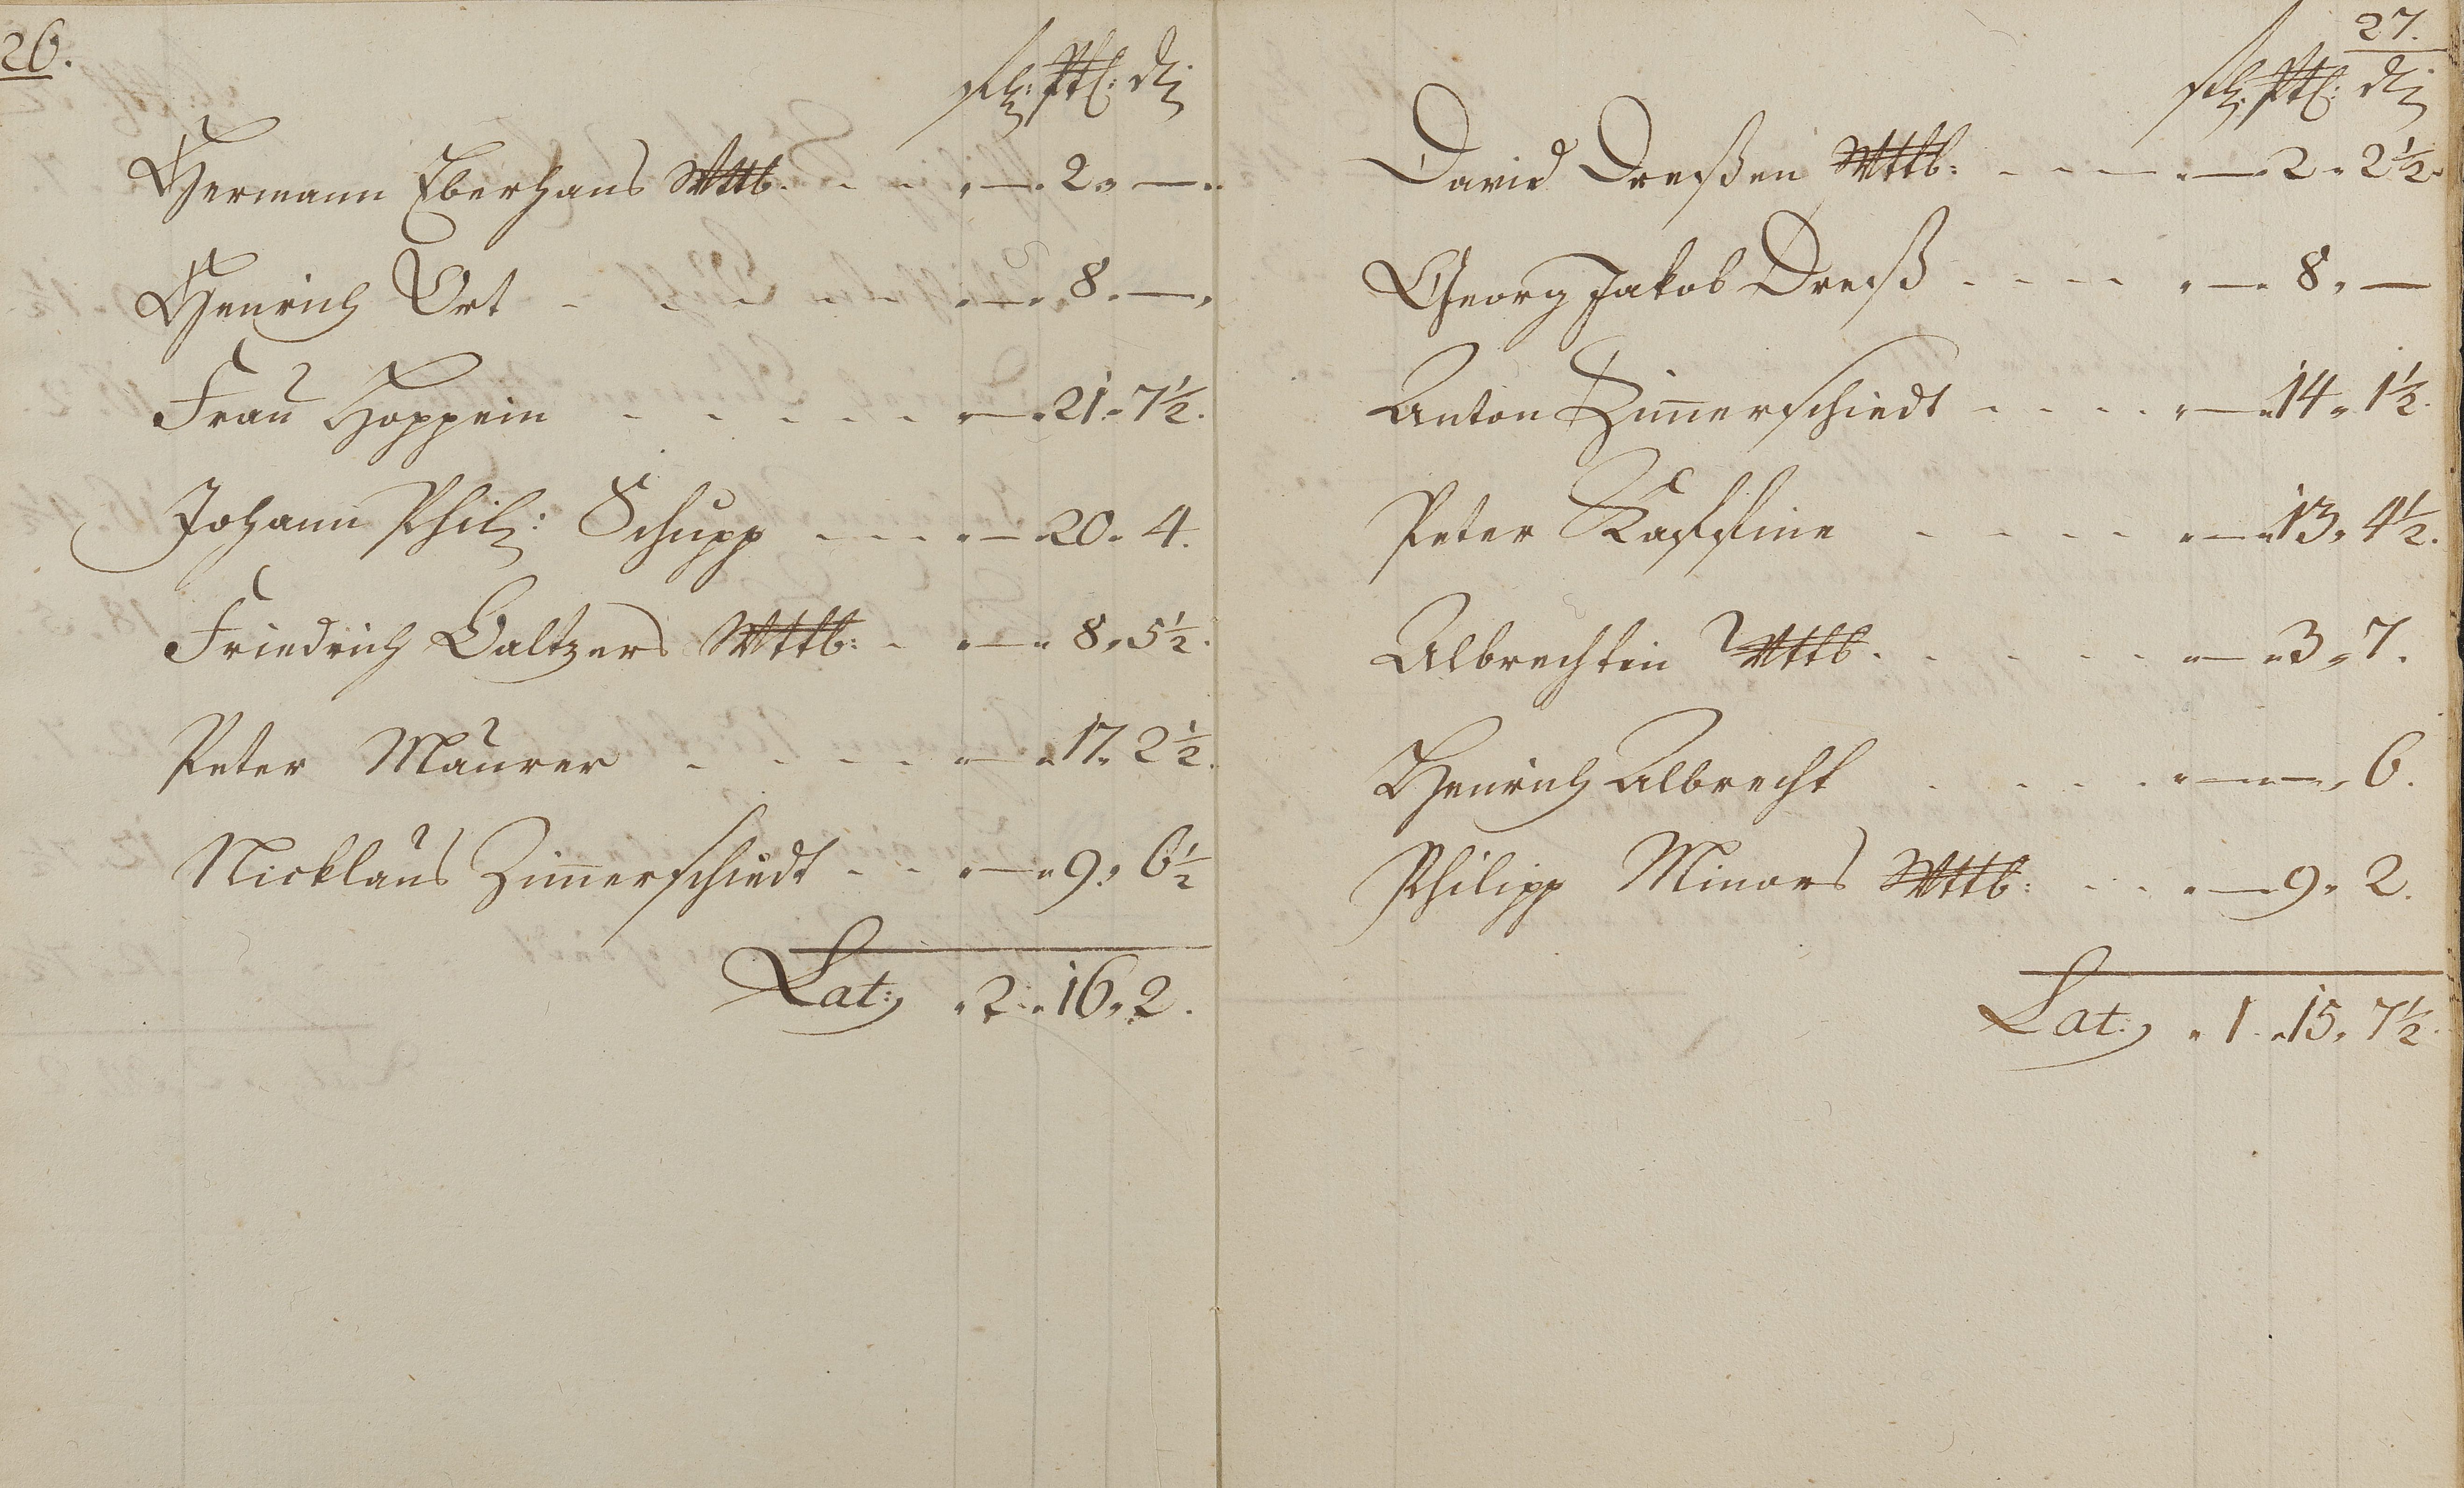 26.
Rthlr: Alb: d.
Hermann Eberhans Wttb. - - - „ — „ 2 „ — „
Henrich Ort - - - - - „ — „ 8 „ — „
Frau Hoppein - - - - - „ — „ 21 „ 7½.
Johann Phil: Schupp - - - „ — „ 20 „ 4.
Friedrich Baltzers Wttb: - „ — „ 8 „ 5½.
Peter Maurer - - - - „ — „ 17 „ 2½.
Nicklaus Zim̄erschiedt - - „ — „ 9 „ 6½
Lat: „ 2 „ 16 „ 2.
27.
David Dreßen Wttb: - - - „ — „ 2 „ 2½.
Georg Jakob Dreß - - - - „ — „ 8 „ —
Anton Zim̄erschiedt - - - - „ — „ 14 „ 1½.
Peter Kaffine - - - - „ — „ 13 „ 4½.
Albrechtin Wttb. - - - - „ — „ 3 „ 7.
Henrich Albrecht - - - - „ — „ — „ 6.
Philipp Minors Wttb: - - „ — „ 9 „ 2.
Lat: „ 1 „ 15 „ 7½.